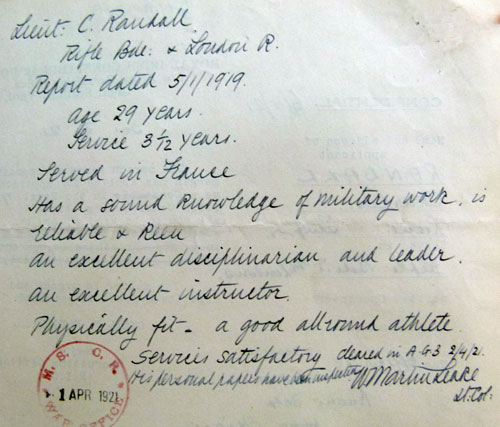 Lieut: C. Randall
Rifle Bde: & London R.
Report dated 5/1/1919.
age 29 years.
Service 3 1/12 years.
Served in France
Has a sound knowledge of military work, is
reliable & keen
an excellent disciplinarian and leader.
an excellent instructor.
Physically fit - a good allround athlete.
Services satisfactory cleared in A G 3 2/4/21.
His personal papers have been inspected W Martin Leake
Lt. Col:
M. S.
1 APR 1921
WAR OFFICE
CONFIDENTIAL